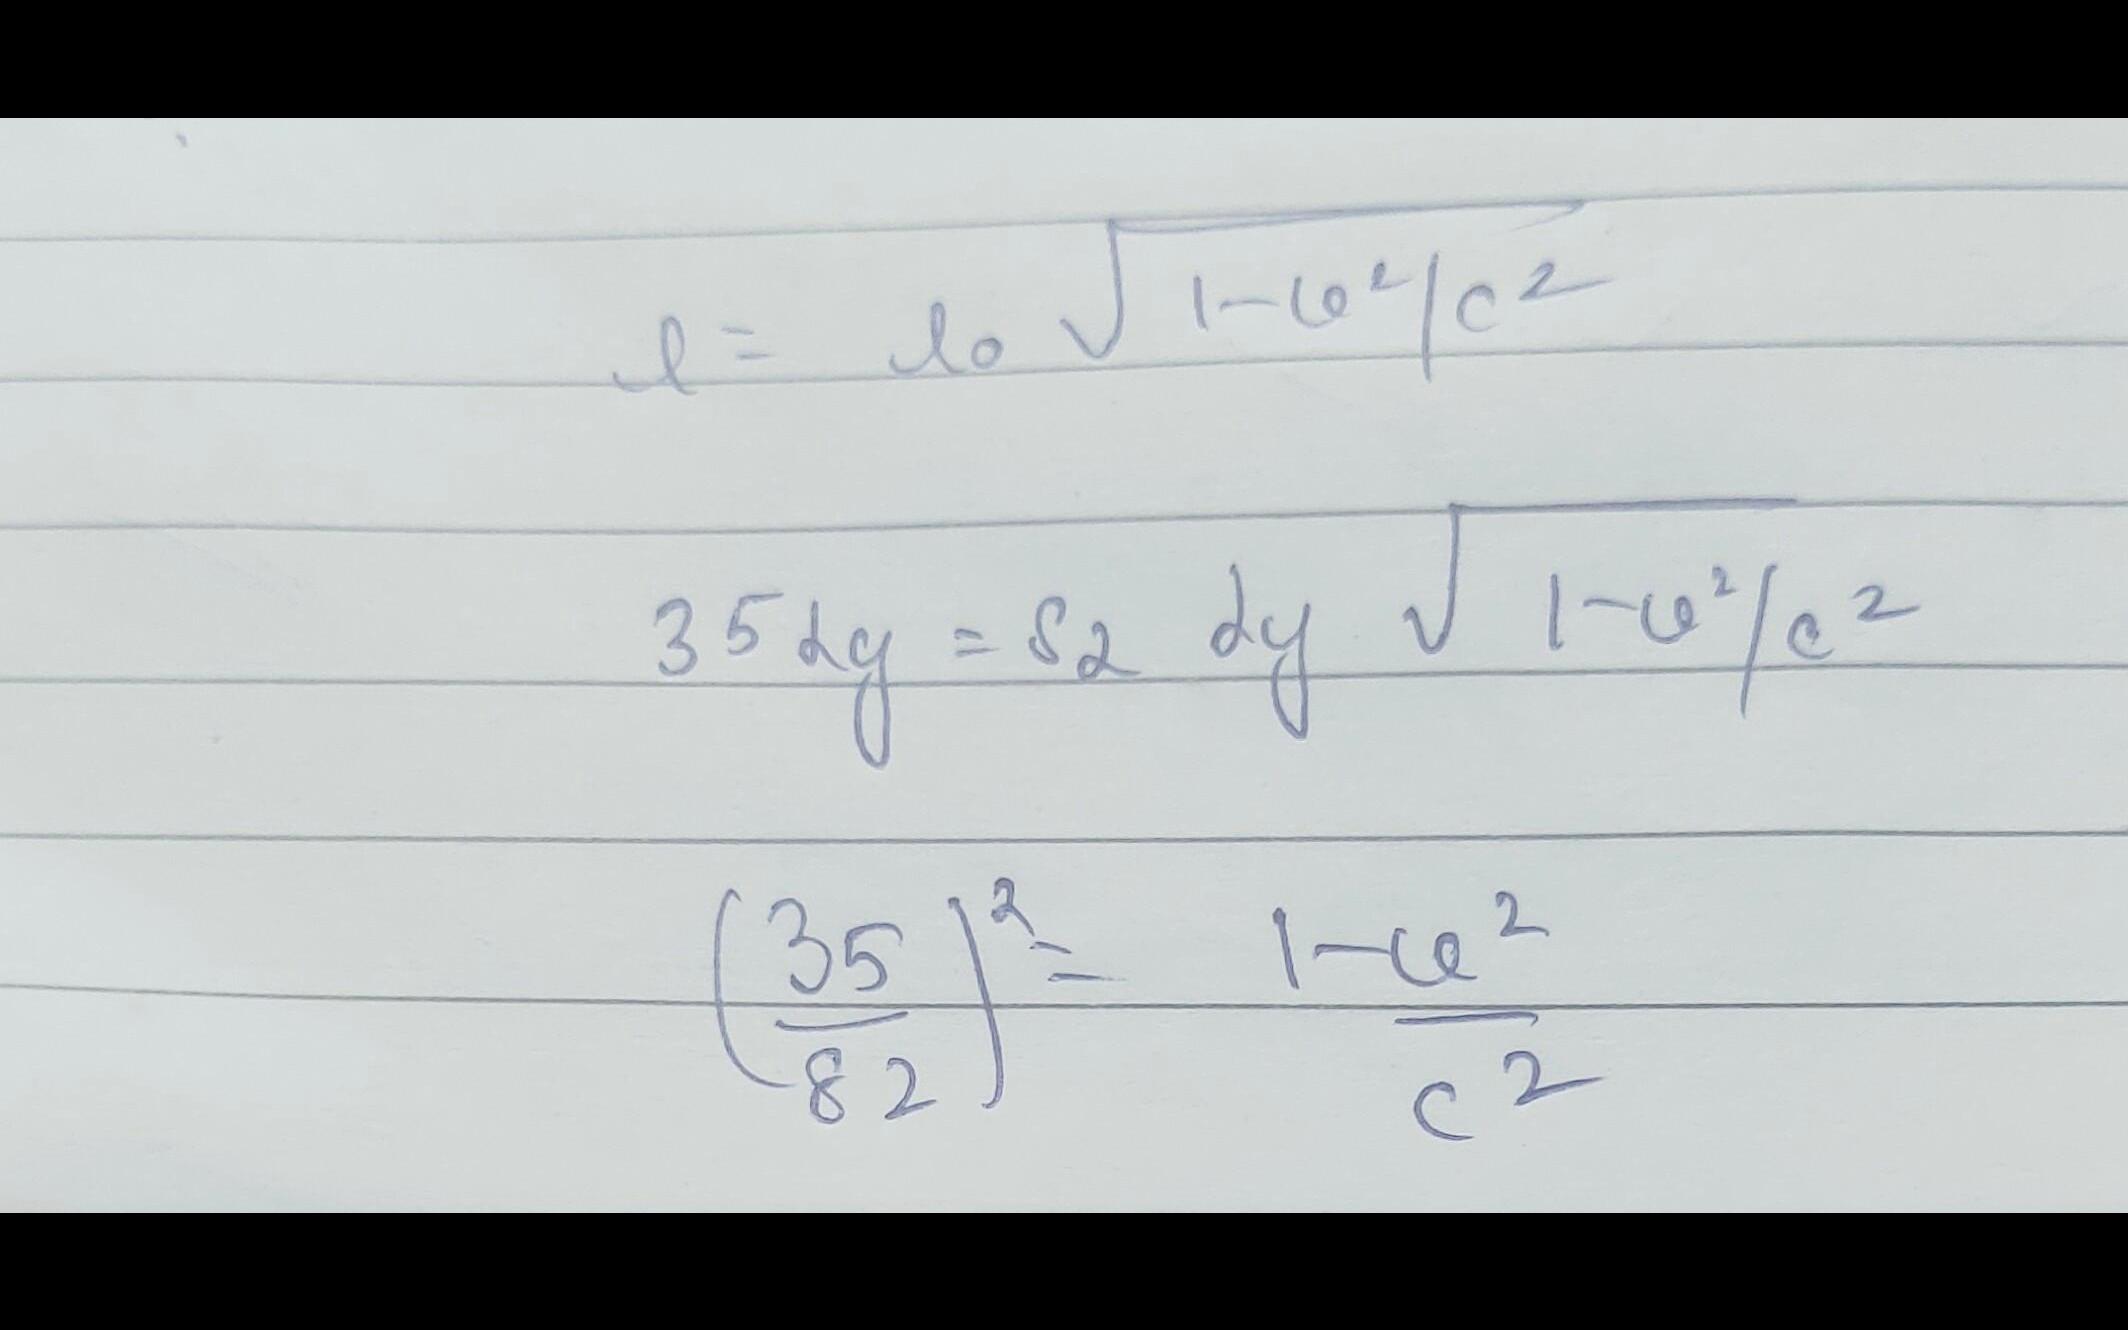 l = l₀ √1-v²/c²
35 ly = 82 ly √1-v²/c²
(35/82)² = 1-v²/c²